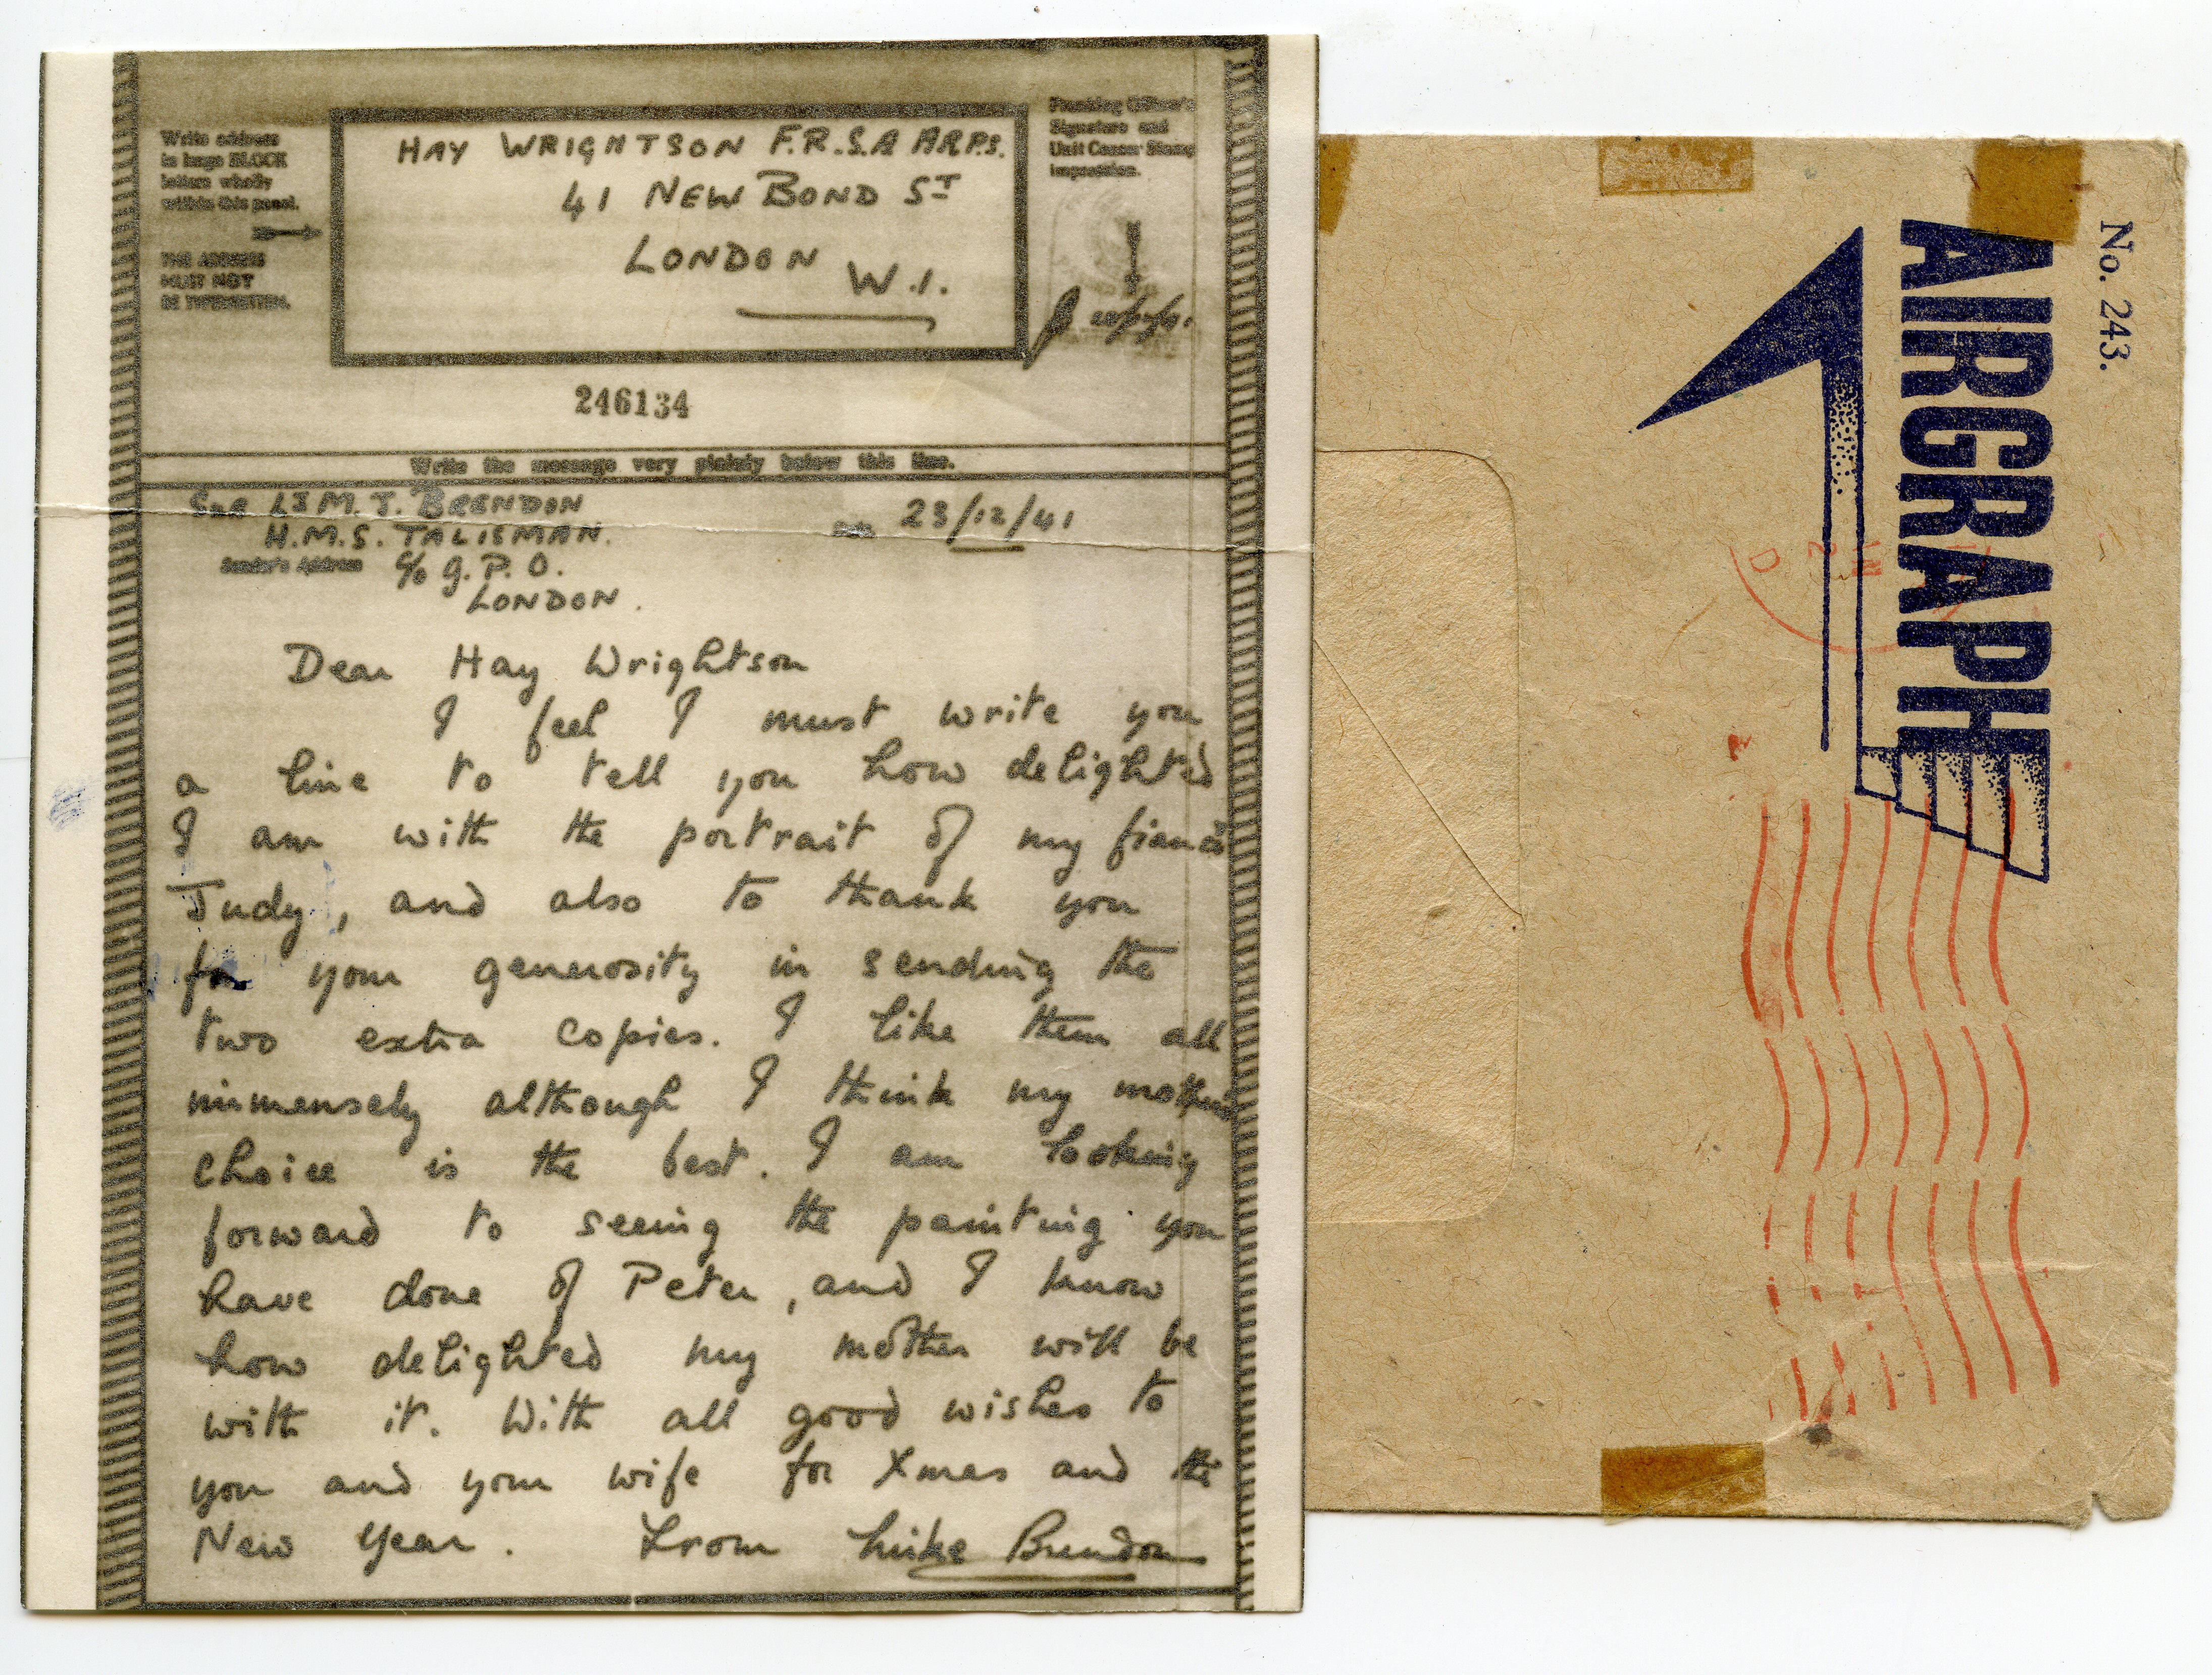 Write address
in large BLOCK
letters wholly
within this panel.
THE ADDRESS
MUST NOT
BE TYPEWRITTEN.
HAY WRIGHTSON F.R.S.A A.R.P.S.
41 NEW BOND ST
LONDON W.1.
Franking Officer's
Signature and
Unit Censor Stamp
Impression.
246134
Write the message very plainly below this line.
SUB LT M. J. BRENDON
H.M.S. TALISMAN.
Sender's Address c/o G.P.O.
LONDON.
Date 23/12/41
Dear Hay Wrightson
I feel I must write you
a line to tell you how delighted
I am with the portrait of my fiancé
Judy, and also to thank you
for your generosity in sending the
two extra copies. I like them all
immensely although I think my mothers
choice is the best. I am looking
forward to seeing the painting you
have done of Peter, and I know
how delighted my mother will be
with it. With all good wishes to
you and your wife for Xmas and the
New Year. From Mike Brendon
No. 243.
AIRGRAPH